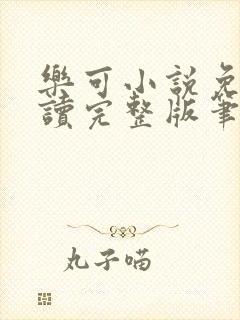 樂可小説免
讀完整版筆
丸子喵